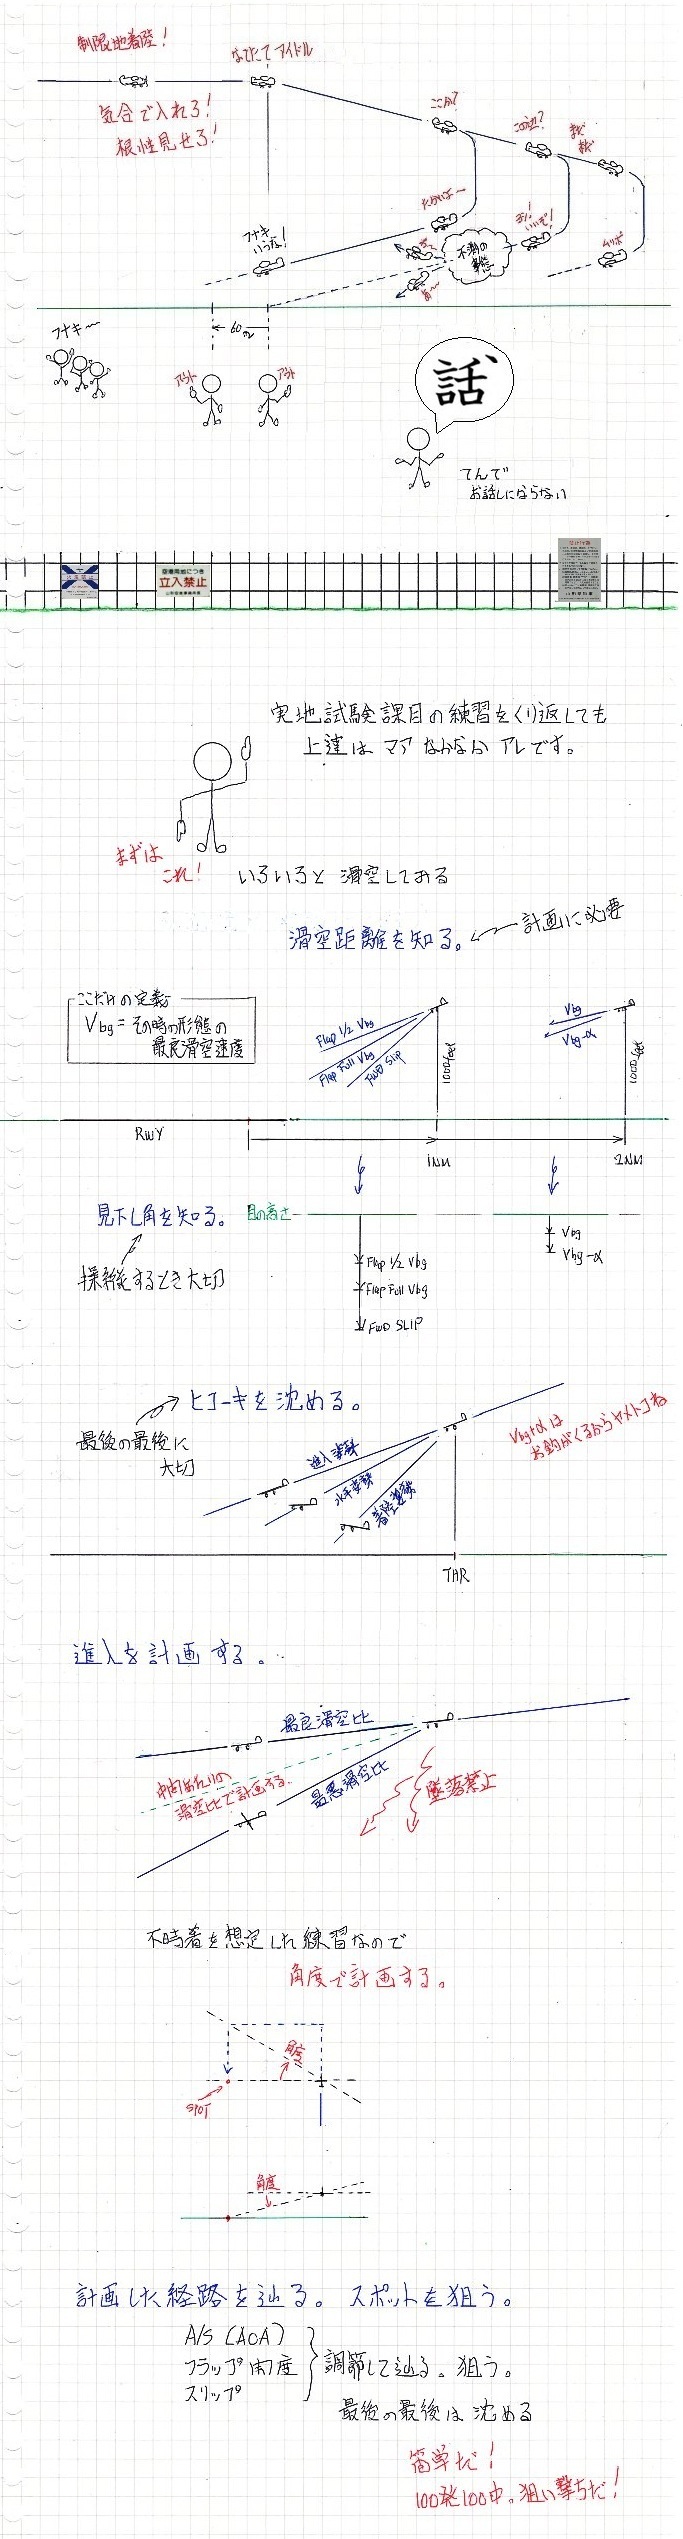 制限地着陸!
なでたてアイドル
気合で入れろ!
根性見せろ!
ここか?
この辺?
まだ
まだ
フナキ
いうな!
よし!
いいぞ!
ムリポ
不測の
事態
あ〜
フナキ〜
60m
アウト
アウト
話
てんで
お話しにならない
立入禁止
実地試験課目の練習をくり返しても
上達は マア なかなか アレです。
まずは
これ!
いろいろと 滑空してみる
滑空距離を知る。
計画に必要
ここだけの定義
Vbg = その時の形態の
最良滑空速度
Flap 1/2 Vbg
Flap Full Vbg
FWD SLIP
1000feet
Vbg
Vbg-α
1000feet
RWY
1NM
2NM
見下し角を知る。
目の高さ
操縦するとき大切
Flap 1/2 Vbg
Flap Full Vbg
FWD SLIP
Vbg
Vbg-α
ヒコーキを沈める。
最後の最後に
大切
進入姿勢
水平姿勢
着陸姿勢
Vbg+αは
お釣がくるからヤメトコね
THR
進入を計画する。
最良滑空比
中間あたりの
滑空比で計画する。
最悪滑空比
墜落禁止
不時着を想定した練習なので
角度で計画する。
角度
SPOT
角度
計画した経路を辿る。 スポットを狙う。
A/S (AOA)
フラップ角度
スリップ
調節して辿る。狙う。
最後の最後は 沈める
簡単だ!
100発100中。狙い撃ちだ!